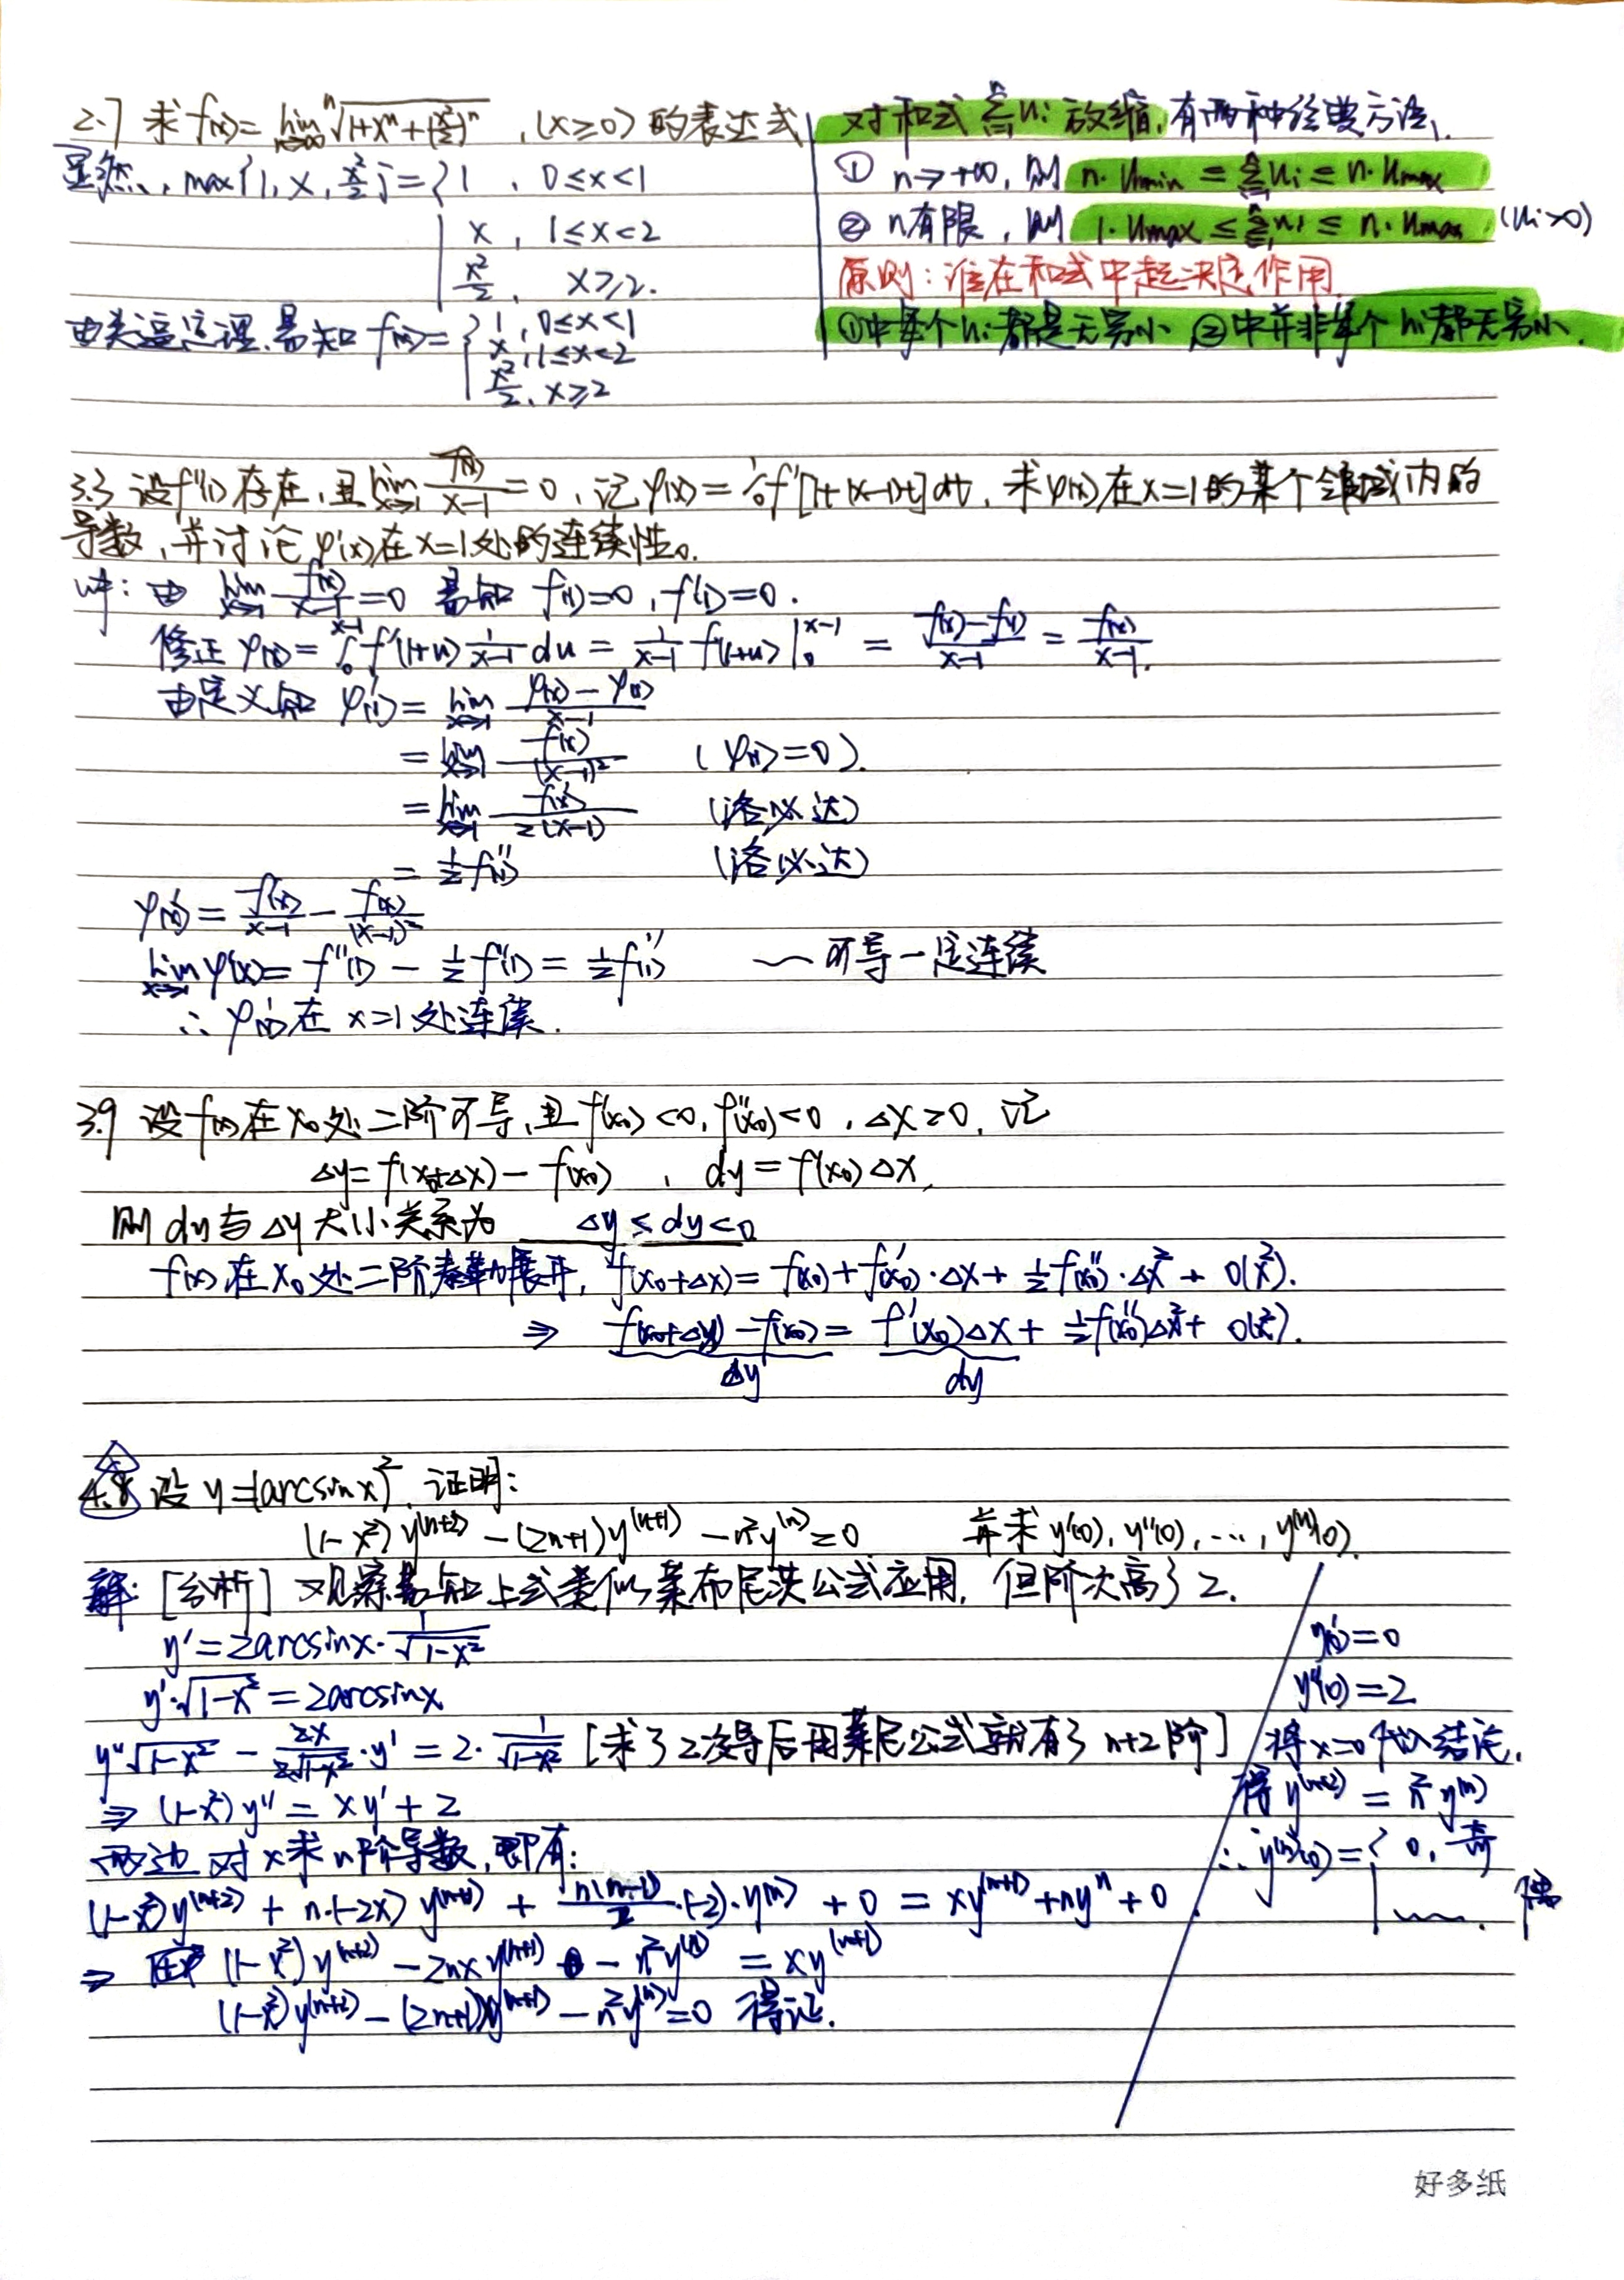 2.7 求 f(x)=lim_{n→∞} ⁿ√(1+xⁿ+(x²/2)ⁿ) ,(x≥0) 的表达式
显然, max{1, x, x²/2}={1 , 0≤x<1
x , 1≤x<2
x²/2 , x≥2.
由夹逼定理,易知 f(x)={1, 0≤x<1
x, 1≤x<2
x²/2, x≥2
对和式 Σuᵢ 放缩,有两种经典方法,
① n→+∞, 则 n·u_min ≤ Σuᵢ ≤ n·u_max
② n有限, 则 1·u_max ≤ Σuᵢ ≤ n·u_max (uᵢ>0)
原则:谁在和式中起决定作用
①中每个uᵢ都是无穷小 ②中并非每个uᵢ都无穷小.
3.3 设f''(1)存在,且lim_{x→1} f(x)/(x-1)=0,记φ(x)=∫₀¹f'[1+(x-1)t]dt,求φ(x)在x=1的某个邻域内的
导数,并讨论φ'(x)在x=1处的连续性。
由 lim_{x→1} f(x)/(x-1)=0 易知 f(1)=0, f'(1)=0.
修正 φ(x)=∫₀^{x-1} f'(1+u) 1/(x-1) du = 1/(x-1) f(1+u)|₀^{x-1} = (f(x)-f(1))/(x-1) = f(x)/(x-1).
由定义知 φ'(1)= lim_{x→1} (φ(x)-φ(1))/(x-1)
= lim_{x→1} f(x)/(x-1)² (φ(1)=0).
= lim_{x→1} f'(x)/2(x-1) (洛必达)
= ½f''(1) (洛必达)
φ'(x)= f'(x)/(x-1) - f(x)/(x-1)²
lim_{x→1}φ'(x)= f''(1) - ½f''(1) = ½f''(1) — 可导一定连续
∴ φ'(x)在 x=1处连续.
3.9 设f(x)在x₀处二阶可导,且f'(x₀)<0, f''(x₀)<0, Δx>0, 记
Δy=f(x₀+Δx)-f(x₀) , dy=f'(x₀)Δx,
则dy与Δy大小关系为 Δy≤dy<0
f(x)在x₀处二阶泰勒展开, f(x₀+Δx)= f(x₀)+f'(x₀)·Δx+½f''(x₀)·Δx²+o(x²).
⇒ f(x₀+Δy)-f(x₀)= f'(x₀)Δx+½f''(x₀)Δx²+o(x²).
Δy dy
4.8 设 y=(arcsinx)², 证明:
(1-x²)y^(n+2) - (2n+1)y^(n+1) - n²y^(n)=0 并求y'(0), y''(0), ..., y^(n)(0).
解: [分析] 观察易知上式类似莱布尼茨公式应用, 但阶次高了2.
y'=2arcsinx·1/√(1-x²)
y'·√(1-x²)=2arcsinx
y''√(1-x²) - 2x/2√(1-x²)·y' = 2·1/√(1-x²) [求了2次导后用莱尼公式就有了n+2阶]
⇒ (1-x²)y''= xy'+2
两边对x求n阶导数,即有:
(1-x²)y^(n+2) + n·(-2x)y^(n+1) + n(n-1)/2·(-2)·y^(n) + 0 = xy^(n+1)+nyⁿ+0
⇒ (1-x²)y^(n+2) - 2nxy^(n+1) - n²y^(n) = xy^(n+1)
(1-x²)y^(n+2) - (2n+1)y^(n+1) - n²y^(n)=0 得证.
y'(0)=0
y''(0)=2
将x=0代入结论,
得y^(n+2) = n²y^(n)
∴ y^(n)(0)={0, 奇
偶
好多纸